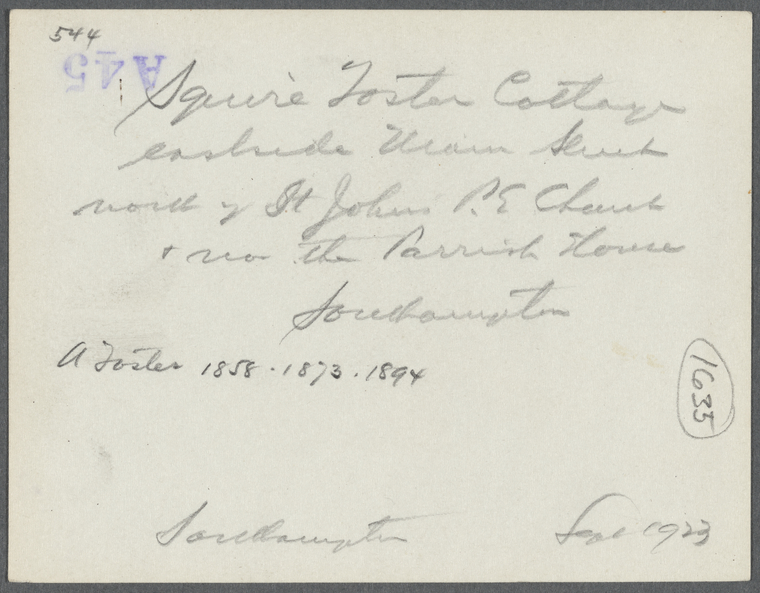 544
A45
Squire Foster Cottage
eastside Main Street
north of St Johns P.E Church
+ now the Parrish House
Southampton
A Foster 1858 . 1873 . 1894
1635
Southampton Sept 1923